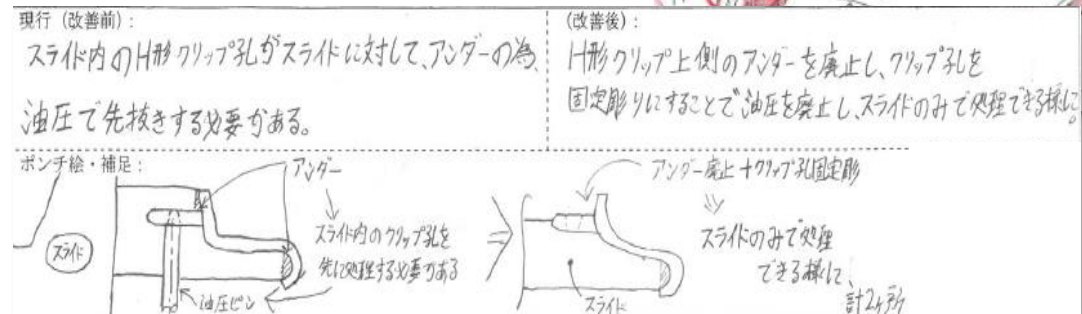 現行（改善前）：
スライド内のH形クリップ孔がスライドに対して、アンダーの為、
油圧で先抜きする必要がある。
（改善後）：
H形クリップ上側のアンダーを廃止し、クリップ孔を
固定彫りにすることで油圧を廃止し、スライドのみで処理できる様に。
ポンチ絵・補足：
アンダー
スライド
スライド内のクリップ孔を
先に処理する必要がある
油圧ピン
アンダー廃止＋クリップ孔固定彫
スライドのみで処理
できる様に、
計2ヶ所
スライド